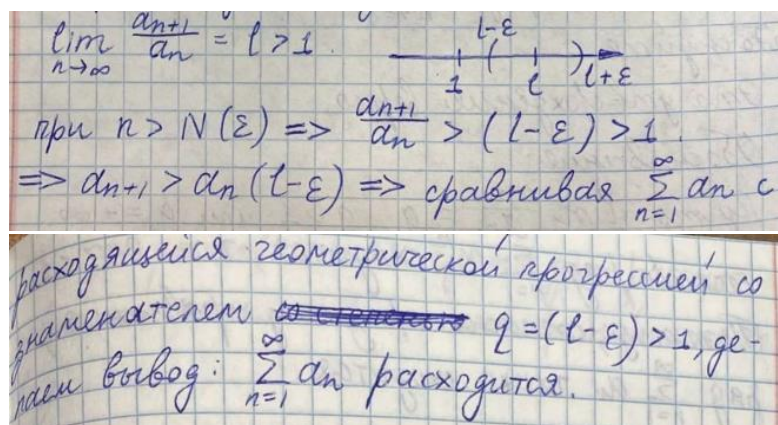 lim n→∞ an+1/an = l > 1. l-ε 1 l l+ε
при n > N(ε) => an+1/an > (l-ε) > 1.
=> an+1 > an(l-ε) => сравнивая ∑ n=1 ∞ an с
расходящейся геометрической прогрессией со
знаменателем q = (l-ε) > 1, де-
лаем вывод: ∑ n=1 ∞ an расходится.